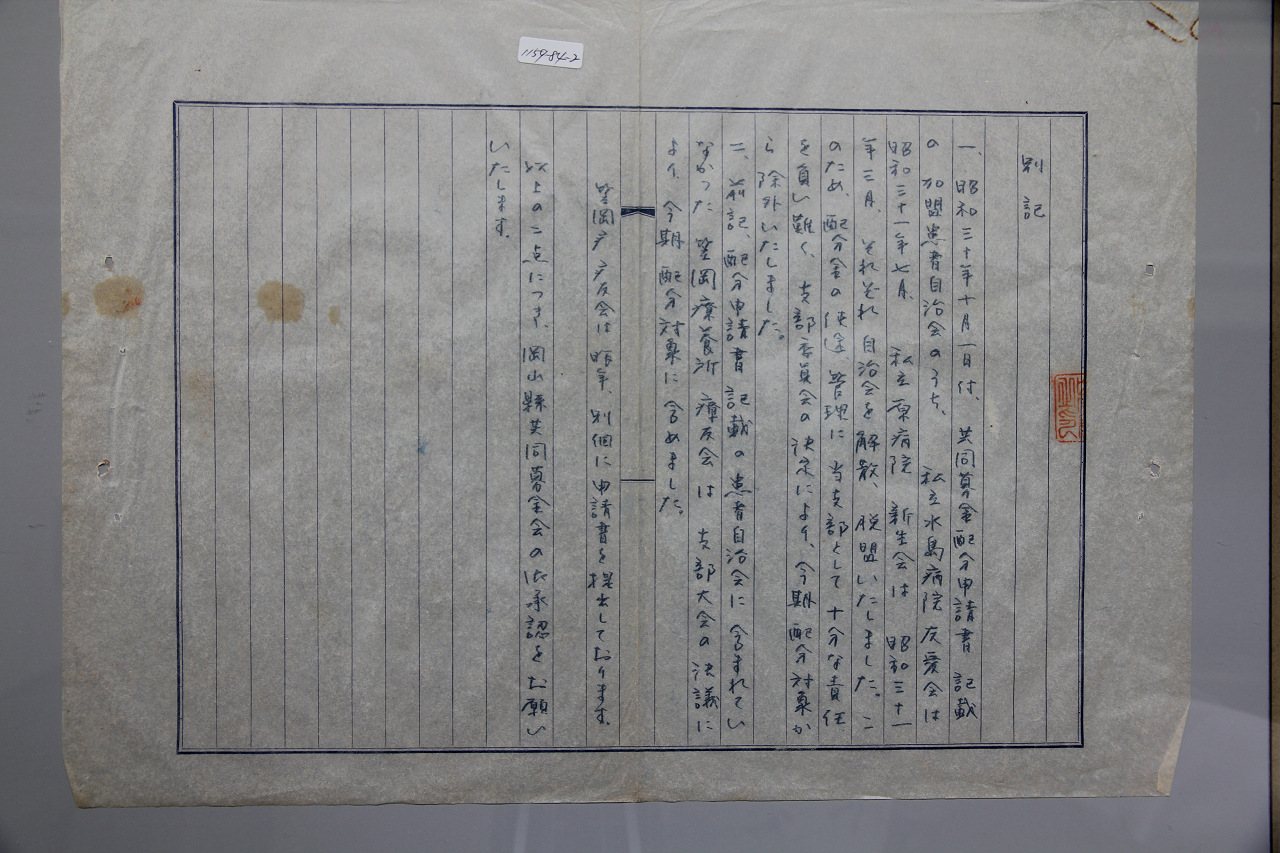 1154-84-2
別記
一、昭和三十年十月一日付、共同募金配分申請書記載
の加盟患者自治会のうち、私立水島病院友愛会は
昭和三十一年七月、私立原病院新生会は昭和三十一
年三月、それぞれ自治会を解散、脱盟いたしました。こ
のため、配分金の使途、管理に当支部として十分な責任
を負い難く、支部委員会の決定により、今期配分対象か
ら除外いたしました。
二、前記、配分申請書記載の患者自治会に含まれてい
なかった笠岡療養所療友会は支部大会の決議に
より、今期配分対象に含めました。
笠岡療友会は昨年、別個に申請書を提出しております。
以上の二点につき、岡山縣共同募金会の御承認をお願い
いたします。